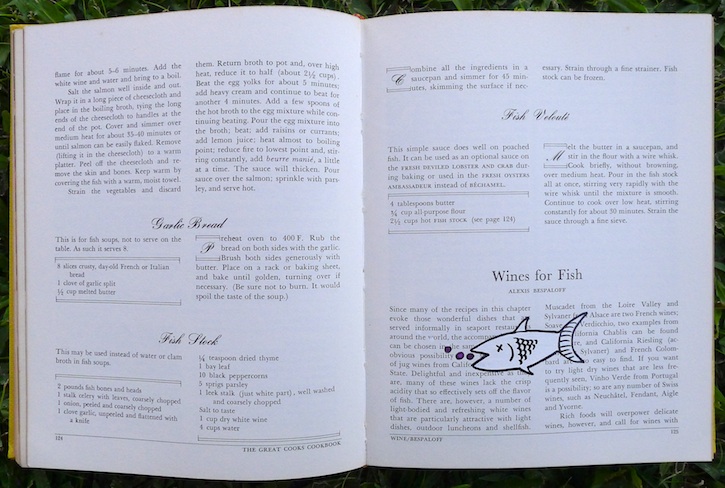 flame for about 5–6 minutes. Add the
white wine and water and bring to a boil.
Salt the salmon well inside and out.
Wrap it in a long piece of cheesecloth and
place in the boiling broth, tying the long
ends of the cheesecloth to handles at the
end of the pot. Cover and simmer over
medium heat for about 35-40 minutes or
until salmon can be easily flaked. Remove
(lifting it in the cheesecloth) to a warm
platter. Peel off the cheesecloth and re-
move the skin and bones. Keep warm by
covering the fish with a warm, moist towel.
Strain the vegetables and discard
them. Return broth to pot and, over high
heat, reduce it to half (about 2½ cups).
Beat the egg yolks for about 5 minutes;
add heavy cream and continue to beat for
another 4 minutes. Add a few spoons of
the hot broth to the egg mixture while con-
tinuing beating. Pour the egg mixture into
the broth; beat; add raisins or currants;
add lemon juice; heat almost to boiling
point; reduce fire to lowest point and, stir-
ring constantly, add beurre manié, a little
at a time. The sauce will thicken. Pour
sauce over the salmon; sprinkle with pars-
ley, and serve hot.
Garlic Bread
This is for fish soups, not to serve on the
table. As such it serves 8.
8 slices crusty, day-old French or Italian
bread
1 clove of garlic split
½ cup melted butter
Preheat oven to 400 F. Rub the
bread on both sides with the garlic.
Brush both sides generously with
butter. Place on a rack or baking sheet,
and bake until golden, turning over if
necessary. (Be sure not to burn. It would
spoil the taste of the soup.)
Fish Stock
This may be used instead of water or clam
broth in fish soups.
2 pounds fish bones and heads
1 stalk celery with leaves, coarsely chopped
1 onion, peeled and coarsely chopped
1 clove garlic, unpeeled and flattened with
a knife
¼ teaspoon dried thyme
1 bay leaf
10 black peppercorns
5 sprigs parsley
1 leek stalk (just white part), well washed
and coarsely chopped
Salt to taste
1 cup dry white wine
4 cups water
124
THE GREAT COOKS COOKBOOK
Combine all the ingredients in a
saucepan and simmer for 45 min-
utes, skimming the surface if nec-
essary. Strain through a fine strainer. Fish
stock can be frozen.
Fish Velouté
This simple sauce does well on poached
fish. It can be used as an optional sauce on
the FRESH DEVILED LOBSTER AND CRAB dur-
ing baking or used in the FRESH OYSTERS
AMBASSADEUR instead of BÉCHAMEL.
4 tablespoons butter
¾ cup all-purpose flour
2½ cups hot FISH STOCK (see page 124)
Melt the butter in a saucepan, and
stir in the flour with a wire whisk.
Cook briefly, without browning,
over medium heat. Pour in the fish stock
all at once, stirring very rapidly with the
wire whisk until the mixture is smooth.
Continue to cook over low heat, stirring
constantly for about 30 minutes. Strain the
sauce through a fine sieve.
Wines for Fish
ALEXIS BESPALOFF
Since many of the recipes in this chapter
evoke those wonderful dishes that are
served informally in seaport restau
around the world, the accom
can be chosen in the same
obvious possibility
of jug wines from Cali
State. Delightful and inexpensive as they
are, many of these wines lack the crisp
acidity that so effectively sets off the flavor
of fish. There are, however, a number of
light-bodied and refreshing white wines
that are particularly attractive with light
dishes, outdoor luncheons and shellfish.
Muscadet from the Loire Valley and
Sylvaner Alsace are two French wines;
Soave Verdicchio, two examples from
California Chablis can be found
and California Riesling (ac
Sylvaner) and French Colom-
easy to find. If you want
to try light dry wines that are less fre-
quently seen, Vinho Verde from Portugal
is a possibility; so are any number of Swiss
wines, such as Neuchâtel, Fendant, Aigle
and Yvorne.
Rich foods will overpower delicate
wines, however, and call for wines with
WINE/BESPALOFF
125